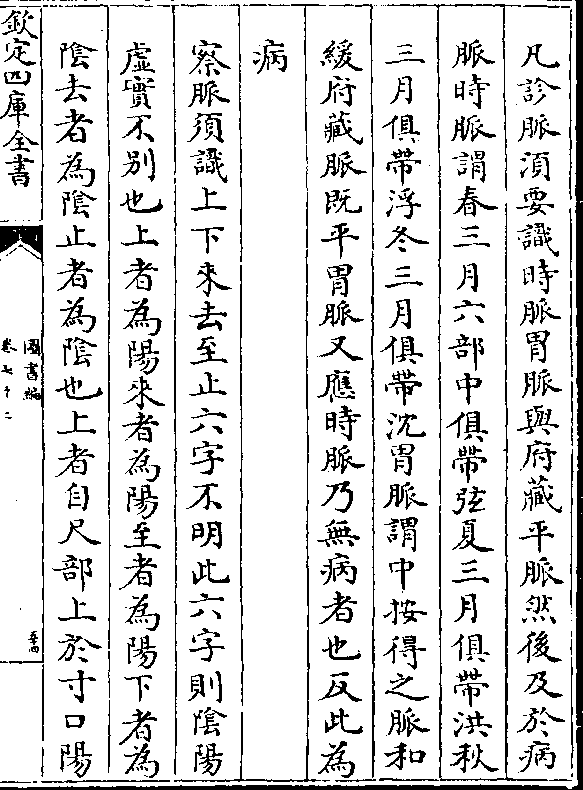 凡診脈湏要識時脈胃脈與府藏平脈然後及於病
脈時脈謂春三月六部中俱帶弦夏三月俱帶洪秋
三月俱帶浮冬三月俱帶沈胃脈謂中按得之脈和
緩府藏脈既平胃脈又應時脈乃無病者也反此為
病
察脈須識上下來去至止六字不明此六字則陰陽
虛實不別也上者為陽來者為陽至者為陽下者為
陰去者為陰止者為陰也上者自尺部上於寸口陽
欽定四庫全書
圖書編
卷七十二
五十四